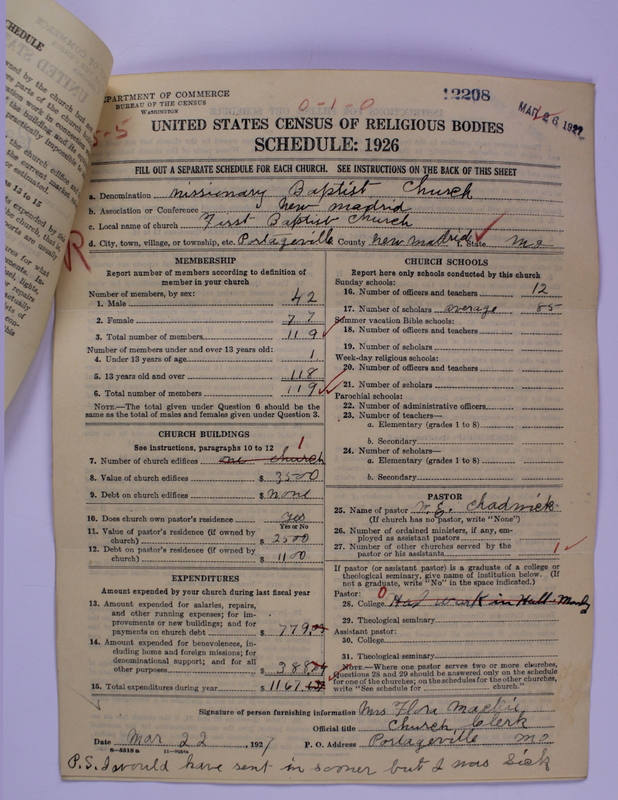 DEPARTMENT OF COMMERCE
BUREAU OF THE CENSUS
WASHINGTON
0-1-0
12208
MAR 26 192
UNITED STATES CENSUS OF RELIGIOUS BODIES
SCHEDULE: 1926
FILL OUT A SEPARATE SCHEDULE FOR EACH CHURCH. SEE INSTRUCTIONS ON THE BACK OF THIS SHEET
a. Denomination Missionary Baptist Church
b. Association or Conference New Madrid
c. Local name of church First Baptist Church
d. City, town, village, or township, etc. Portageville County New Madrid State Mo
R
MEMBERSHIP
Report number of members according to definition of
member in your church
Number of members, by sex:
1. Male 42
2. Female 77
3. Total number of members 119
Number of members under and over 13 years old:
4. Under 13 years of age 1
5. 13 years old and over 118
6. Total number of members 119
NOTE.—The total given under Question 6 should be the
same as the total of males and females given under Question 3.
CHURCH BUILDINGS
See instructions, paragraphs 10 to 12
7. Number of church edifices one church 1
8. Value of church edifices $ 3500
9. Debt on church edifices $ none
10. Does church own pastor's residence yes
Yes or No
11. Value of pastor's residence (if owned by
church) $ 2500
12. Debt on pastor's residence (if owned by
church) $ 1100
EXPENDITURES
Amount expended by church during last fiscal year
13. Amount expended for salaries, repairs,
and other running expenses; for im-
provements or new buildings; and for
payments on church debt $ 779
14. Amount expended for benevolences, in-
cluding home and foreign missions; for
denominational support; and for all
other purposes $ 388
15. Total expenditures during year $ 1167
CHURCH SCHOOLS
Report here only schools conducted by this church
Sunday schools:
16. Number of officers and teachers 12
17. Number of scholars average 85
Summer vacation Bible schools:
18. Number of officers and teachers
19. Number of scholars
Week-day religious schools:
20. Number of officers and teachers
21. Number of scholars
Parochial schools:
22. Number of administrative officers
23. Number of teachers—
a. Elementary (grades 1 to 8)
b. Secondary
24. Number of scholars—
a. Elementary (grades 1 to 8)
b. Secondary
PASTOR
25. Name of pastor W. E. Chadwick
(If church has no pastor, write "None")
26. Number of ordained ministers, if any, em-
ployed as assistant pastors
27. Number of other churches served by the
pastor or his assistants 1
If pastor (or assistant pastor) is a graduate of a college or
theological seminary, give name of institution below. (If
not a graduate, write "No" in the space indicated.)
Pastor: 0
28. College Had work in Hall-Moody
29. Theological seminary
Assistant pastor:
30. College
31. Theological seminary
NOTE.—Where one pastor serves two or more churches,
Questions 28 and 29 should be answered only on the schedule
for one of the churches; on the schedules for the other churches,
write "See schedule for church."
Signature of person furnishing information Mrs Flora
Official title Church Clerk
Date Mar 22, 1927 P. O. Address Portageville Mo
P.S. I would have sent in sooner but I was Sick